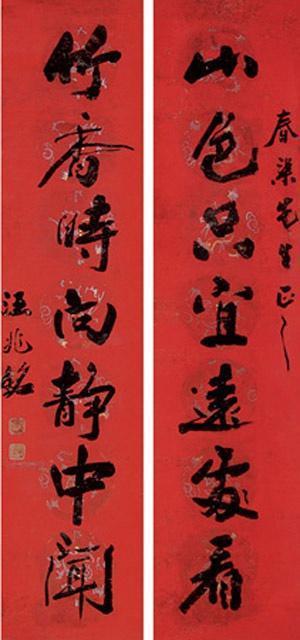 春渠先生正之
山色只宜遠處看
竹香時向靜中聞
汪兆銘